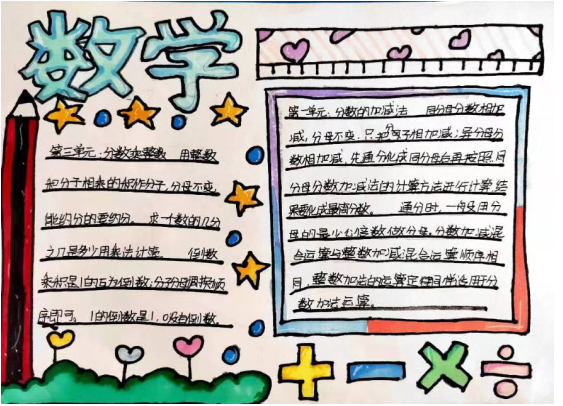 数学
第三单元:分数乘整数 用整数
和分子相乘的积作分子,分母不变,
能约分的要约分。 求一个数的几分
之几是多少用乘法计算。 倒数:
乘积是1的互为倒数:分子分母调换顺
序即可。 1的倒数是1,0没有倒数。
第一单元:分数的加减法 同分母分数相加
减,分母不变,只把分子相加减;异分母分
数相加减,先通分化成同分母后再按照同
分母分数加减法的计算方法进行计算,结
果要化成最简分数。 通分时,一般用分
母的最小公倍数做分母,分数加减混
合运算与整数加减混合运算顺序相
同,整数加法的运算定律同样适用于分
数加法运算。
+ − × ÷